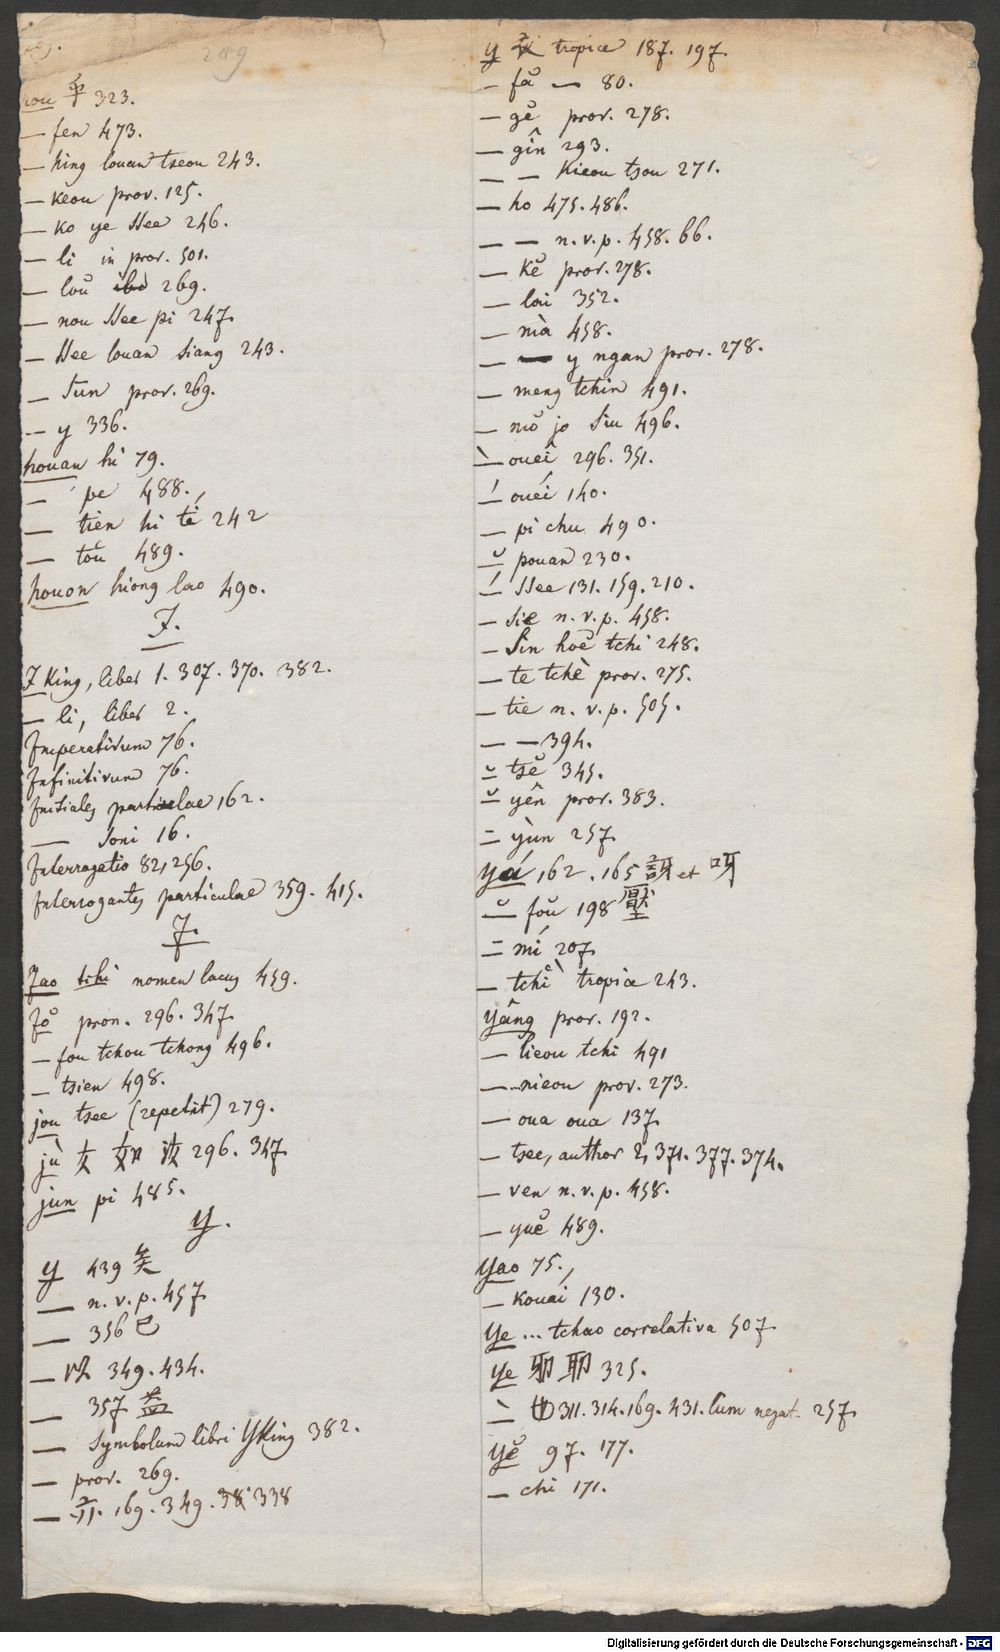 209
hou 乎 323.
— fen 473.
— hing louan tseou 243.
— keou prov. 125.
— ko ye ssee 246.
— li in prov. 501.
— loŭ 269.
— nou ssee pi 247.
— ssee louan siang 243.
— sun prov. 269.
-- y 336.
houan hi 79.
— pe 488.
— tien hi tí 242
— toŭ 489.
houon hiong lao 490.
I.
I King, liber 1. 307. 370. 382.
— li, liber 2.
Imperativum 76.
Infinitivum 76.
Initiales particulae 162.
— soni 16.
Interrogatio 82, 256.
Interrogantes particulae 359. 415.
J.
Jao tchi nomen lacus 459.
Jŏ pron. 296. 347.
— fou tchou tchong 496.
— tsien 498.
jou tsee (repetit) 279.
jù 女 如 汝 296. 347.
jun pi 485.
Y.
y 439 矣
— n. v. p. 457
— 356 已
— 以 349. 434.
— 357 益
— symbolum libri Y King 382.
— prov. 269.
— 169. 349. 338
y 衣 tropice 187. 197.
— fă — 80.
— gĕ prov. 278.
— gîn 293.
— — kieou tsou 271.
— ho 475. 486.
— — n. v. p. 458. 66.
— kĕ prov. 278.
— lai 352.
— mà 458.
— y ngan prov. 278.
— meng tchin 491.
— mŏ jo siu 496.
— oueî 296. 351.
— ouéi 140.
— pi chu 490.
— pouan 230.
— ssee 131. 159. 210.
— sie n. v. p. 458.
— sin hoĕ tchi 248.
— te tchè prov. 275.
— tie n. v. p. 505.
— — 394.
— tsĕ 345.
— yên prov. 383.
= yùn 257
yá 162. 165 訝 et 呀
— foŭ 198 壓
= mí 207.
— tchi tropice 243.
yâng prov. 192.
— lieou tchi 491
— nieou prov. 273.
— oua oua 137.
— tsee, author 2, 371. 377. 374.
— ven n. v. p. 458.
— yuĕ 489.
yao 75.
— kouai 130.
ye ... tchao correlativa 507.
ye 邪 耶 325.
— 也 311. 314. 169. 431. Cum negat. 257.
yĕ 97. 177.
— chi 171.
Digitalisierung gefördert durch die Deutsche Forschungsgemeinschaft - DFG